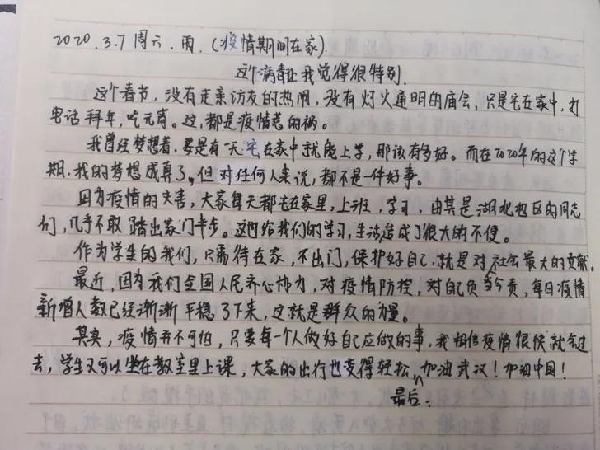 2020.3.7 周六.雨.(疫情期间在家)
这个病毒让我觉得很特别.
这个春节,没有走亲访友的热闹,没有灯火通明的庙会,只是宅在家中,打
电话拜年,吃元宵。这都是疫情惹的祸。
我曾经梦想着.要是有一天宅在家中就能上学,那该有多好。而在2020年的这个学
期.我的梦想成真了,但对任何人来说,都不是一件好事。
因为疫情的灾害,大家每天都宅在家里,上班,学习.由其是湖北地区的同志
们,几乎不敢踏出家门半步。这也给我们的学习,生活造成了很大的不便。
作为学生的我们,只需待在家,不出门,保护好自己.就是对社会最大的贡献.
最近,因为我们全国人民齐心协力,对疫情防控,对自己负责,每日疫情
新增人数已经渐渐平稳了下来,这就是群众的力量。
其实,疫情并不可怕,只要每一个人做好自己应做的事,我相信疫情很快就会过
去,学生又可以坐在教室里上课,大家的出行也变得轻松,加油武汉!加油中国!
最后: